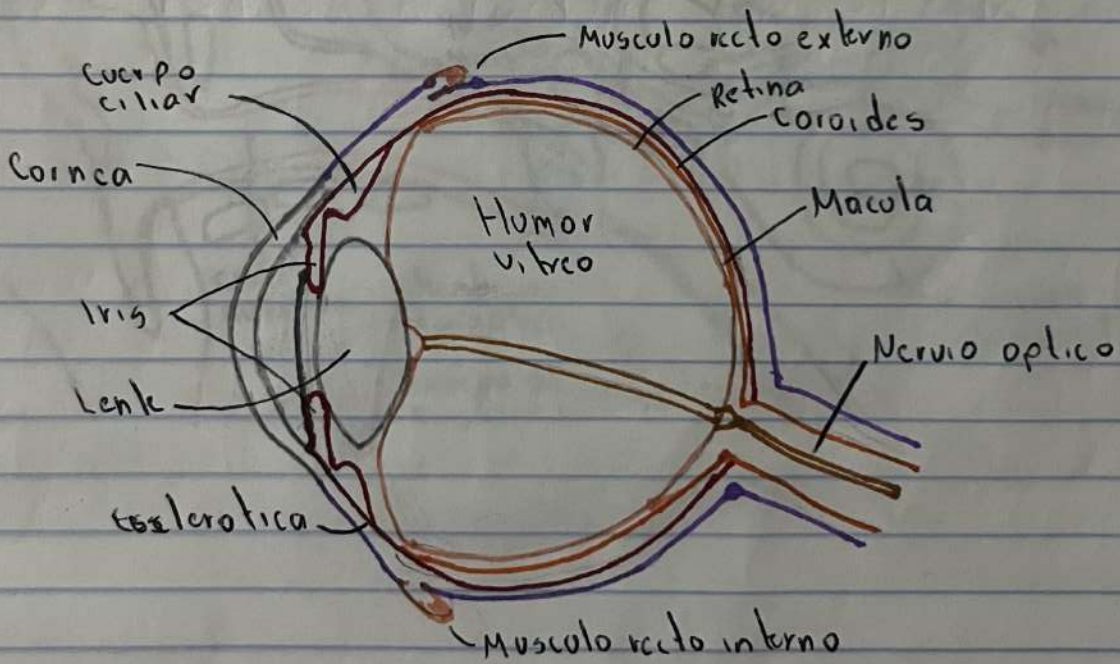 Musculo recto externo
Cuerpo
ciliar
Retina
Coroides
Cornea
Macula
Humor
vitreo
Iris
Nervio optico
Lente
Esclerotica
Musculo recto interno